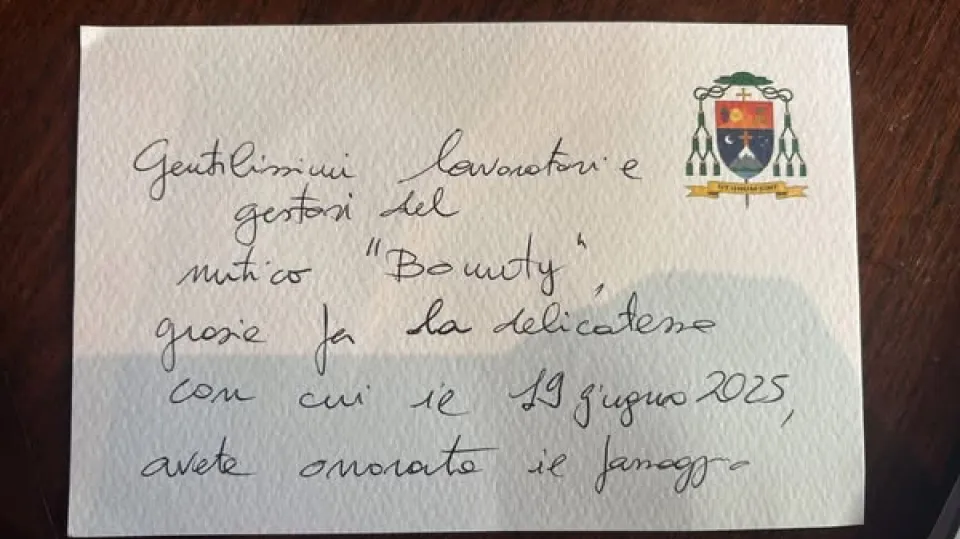 Gentilissimi lavoratori e
gestori del
mitico "Bounty",
grazie per la delicatezza
con cui il 19 giugno 2025,
avete onorato il passaggio